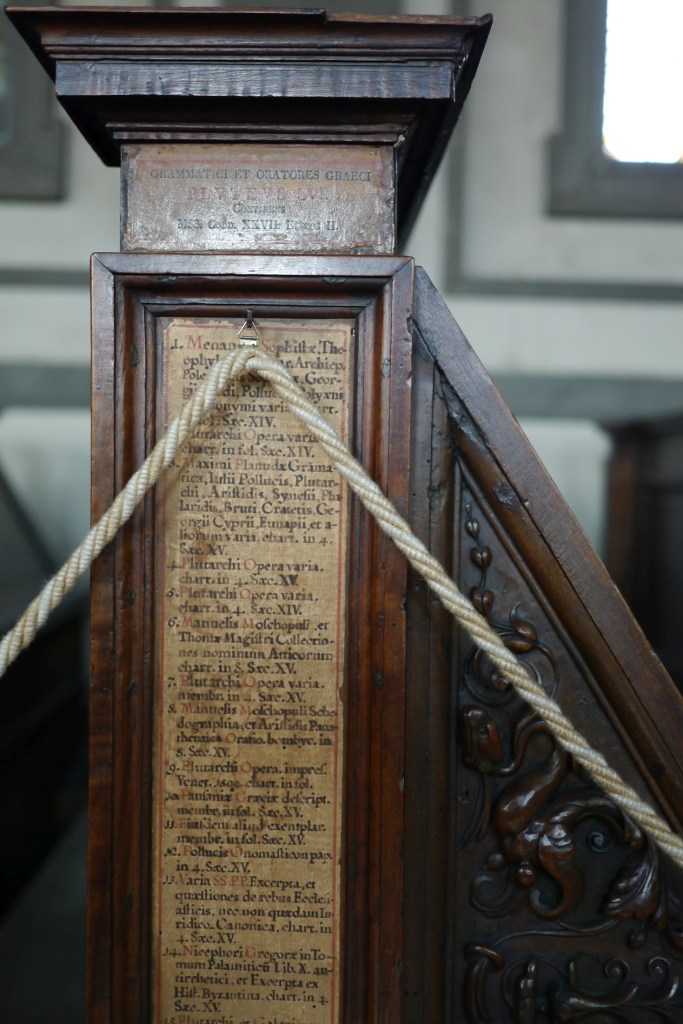 GRAMMATICI ET ORATORES GRAECI
PLUTEUS LVI
Continens
MSS. Codd. XXVII. Et Impressos II.
1. Menandri Sophistæ, Theo
ophyl Archiep.
Georgii
Pollucis Polyxni
varia
fol. Sæc. XIV.
Plutarchi Opera varia
chart. in fol. Sæc. XIV.
3. Maximi Planudæ Grãma
tica, Iulii Pollucis, Plutar
chi, Aristidis, Synesii, Pha
laridis, Bruti, Cratetis, Ge
orgii Cyprii, Eunapii, et a
liorum varia. chart. in 4.
Sæc. XV.
4. Plutarchi Opera varia.
chart. in 4. Sæc. XV
5. Plutarchi Opera varia.
chart. in 4. Sæc. XIV.
6. Manuelis Moschopuli, et
Thomæ Magistri Collectio
nes nominum Atticorum
chart. in 8. Sæc. XV.
7. Plutarchi Opera varia.
membr. in 4. Sæc. XV.
8. Manuelis Moschopuli Sche
dographia, et Aristidis Pana
thenaica Oratio. bombyc. in
8. Sæc. XV.
9. Plutarchi Opera. impres.
Venet. 1509. chart. in fol.
10. Pausaniæ Græciæ descript.
membr. in fol. Sæc. XV.
11. Eiusdem aliud exemplar.
membr. in fol. Sæc. XV.
12. Pollucis Onomasticon pap.
in 4. Sæc. XV.
13. Varia SS. P.P. Excerpta, et
quæstiones de rebus Eccles
iasticis, nec non quædam Iu
ridico-Canonica, chart. in
4. Sæc. XV.
14. Nicephori Gregoræ in To
mum Palamiticũ Lib. X. an
tirrhetici, et Excerpta ex
Hist. Byzantina. chart. in 4.
Sæc. XV.
15. Plutarchi et